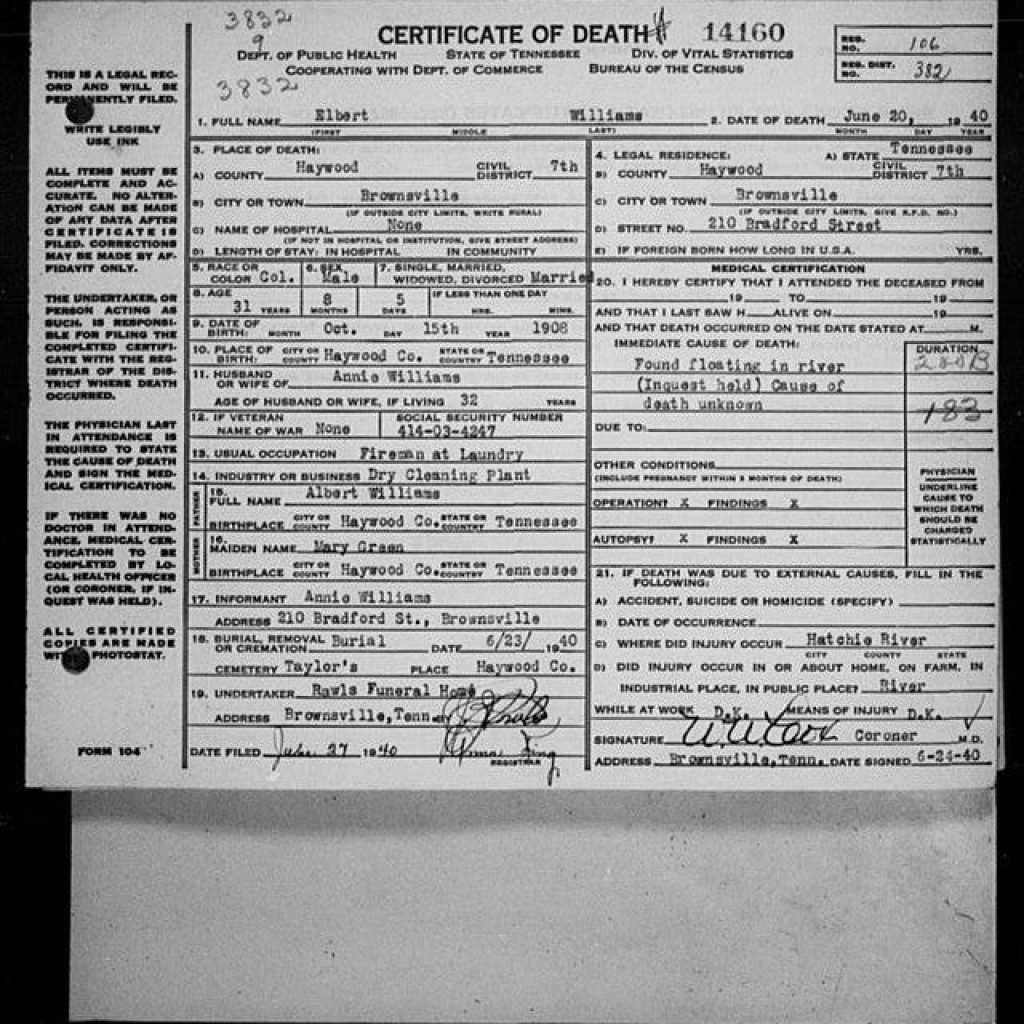 3832
9
3832
CERTIFICATE OF DEATH 14160
DEPT. OF PUBLIC HEALTH STATE OF TENNESSEE DIV. OF VITAL STATISTICS
COOPERATING WITH DEPT. OF COMMERCE BUREAU OF THE CENSUS
REG. NO. 106
REG. DIST. NO. 382
THIS IS A LEGAL REC-
ORD AND WILL BE
PERMANENTLY FILED.
WRITE LEGIBLY
USE INK
ALL ITEMS MUST BE
COMPLETE AND AC-
CURATE. NO ALTER-
ATION CAN BE MADE
OF ANY DATA AFTER
CERTIFICATE IS
FILED. CORRECTIONS
MAY BE MADE BY AF-
FIDAVIT ONLY.
THE UNDERTAKER, OR
PERSON ACTING AS
SUCH, IS RESPONSI-
BLE FOR FILING THE
COMPLETED CERTIFI-
CATE WITH THE REG-
ISTRAR OF THE DIS-
TRICT WHERE DEATH
OCCURRED.
THE PHYSICIAN LAST
IN ATTENDANCE IS
REQUIRED TO STATE
THE CAUSE OF DEATH
AND SIGN THE MED-
ICAL CERTIFICATION.
IF THERE WAS NO
DOCTOR IN ATTEND-
ANCE, MEDICAL CER-
TIFICATION TO BE
COMPLETED BY LO-
CAL HEALTH OFFICER
(OR CORONER, IF IN-
QUEST WAS HELD).
ALL CERTIFIED
COPIES ARE MADE
WITH PHOTOSTAT.
FORM 104
1. FULL NAME Elbert Williams 2. DATE OF DEATH June 20, 19 40
(FIRST) MIDDLE LAST) MONTH DAY YEAR
3. PLACE OF DEATH:
A) COUNTY Haywood CIVIL DISTRICT 7th
B) CITY OR TOWN Brownsville
(IF OUTSIDE CITY LIMITS, WRITE RURAL)
C) NAME OF HOSPITAL None
(IF NOT IN HOSPITAL OR INSTITUTION, GIVE STREET ADDRESS)
D) LENGTH OF STAY: IN HOSPITAL IN COMMUNITY
5. RACE OR COLOR Col. 6. SEX Male 7. SINGLE, MARRIED, WIDOWED, DIVORCED Married
8. AGE 31 YEARS 8 MONTHS 5 DAYS IF LESS THAN ONE DAY HRS. MINS.
9. DATE OF BIRTH: MONTH Oct. DAY 15th YEAR 1908
10. PLACE OF BIRTH: CITY OR COUNTY Haywood Co. STATE OR COUNTRY Tennessee
11. HUSBAND OR WIFE OF Annie Williams
AGE OF HUSBAND OR WIFE, IF LIVING 32 YEARS
12. IF VETERAN NAME OF WAR None SOCIAL SECURITY NUMBER 414-03-4247
13. USUAL OCCUPATION Fireman at Laundry
14. INDUSTRY OR BUSINESS Dry Cleaning Plant
FATHER 15. FULL NAME Albert Williams
BIRTHPLACE CITY OR COUNTY Haywood Co. STATE OR COUNTRY Tennessee
MOTHER 16. MAIDEN NAME Mary Green
BIRTHPLACE CITY OR COUNTY Haywood Co. STATE OR COUNTRY Tennessee
17. INFORMANT Annie Williams
ADDRESS 210 Bradford St., Brownsville
18. BURIAL, REMOVAL OR CREMATION Burial DATE 6/23/ 19 40
CEMETERY Taylor's PLACE Haywood Co.
19. UNDERTAKER Rawls Funeral Home
ADDRESS Brownsville, Tenn. BY
DATE FILED 27 1940
REGISTRAR
4. LEGAL RESIDENCE: A) STATE Tennessee
B) COUNTY Haywood CIVIL DISTRICT 7th
C) CITY OR TOWN Brownsville
(IF OUTSIDE CITY LIMITS, GIVE R.F.D. NO.)
D) STREET NO. 210 Bradford Street
E) IF FOREIGN BORN HOW LONG IN U.S.A. YRS.
MEDICAL CERTIFICATION
20. I HEREBY CERTIFY THAT I ATTENDED THE DECEASED FROM
19 TO 19
AND THAT I LAST SAW H ALIVE ON 19
AND THAT DEATH OCCURRED ON THE DATE STATED AT M.
IMMEDIATE CAUSE OF DEATH: DURATION
Found floating in river
(Inquest held) Cause of
death unknown 183
DUE TO:
OTHER CONDITIONS
(INCLUDE PREGNANCY WITHIN 3 MONTHS OF DEATH)
OPERATION? X FINDINGS X
AUTOPSY? X FINDINGS X
PHYSICIAN
UNDERLINE
CAUSE TO
WHICH DEATH
SHOULD BE
CHARGED
STATISTICALLY
21. IF DEATH WAS DUE TO EXTERNAL CAUSES, FILL IN THE
FOLLOWING:
A) ACCIDENT, SUICIDE OR HOMICIDE (SPECIFY)
B) DATE OF OCCURRENCE
C) WHERE DID INJURY OCCUR Hatchie River
CITY COUNTY STATE
D) DID INJURY OCCUR IN OR ABOUT HOME, ON FARM, IN
INDUSTRIAL PLACE, IN PUBLIC PLACE? River
WHILE AT WORK D.K. MEANS OF INJURY D.K.
SIGNATURE Coroner M.D.
ADDRESS Brownsville, Tenn. DATE SIGNED 6-24-40